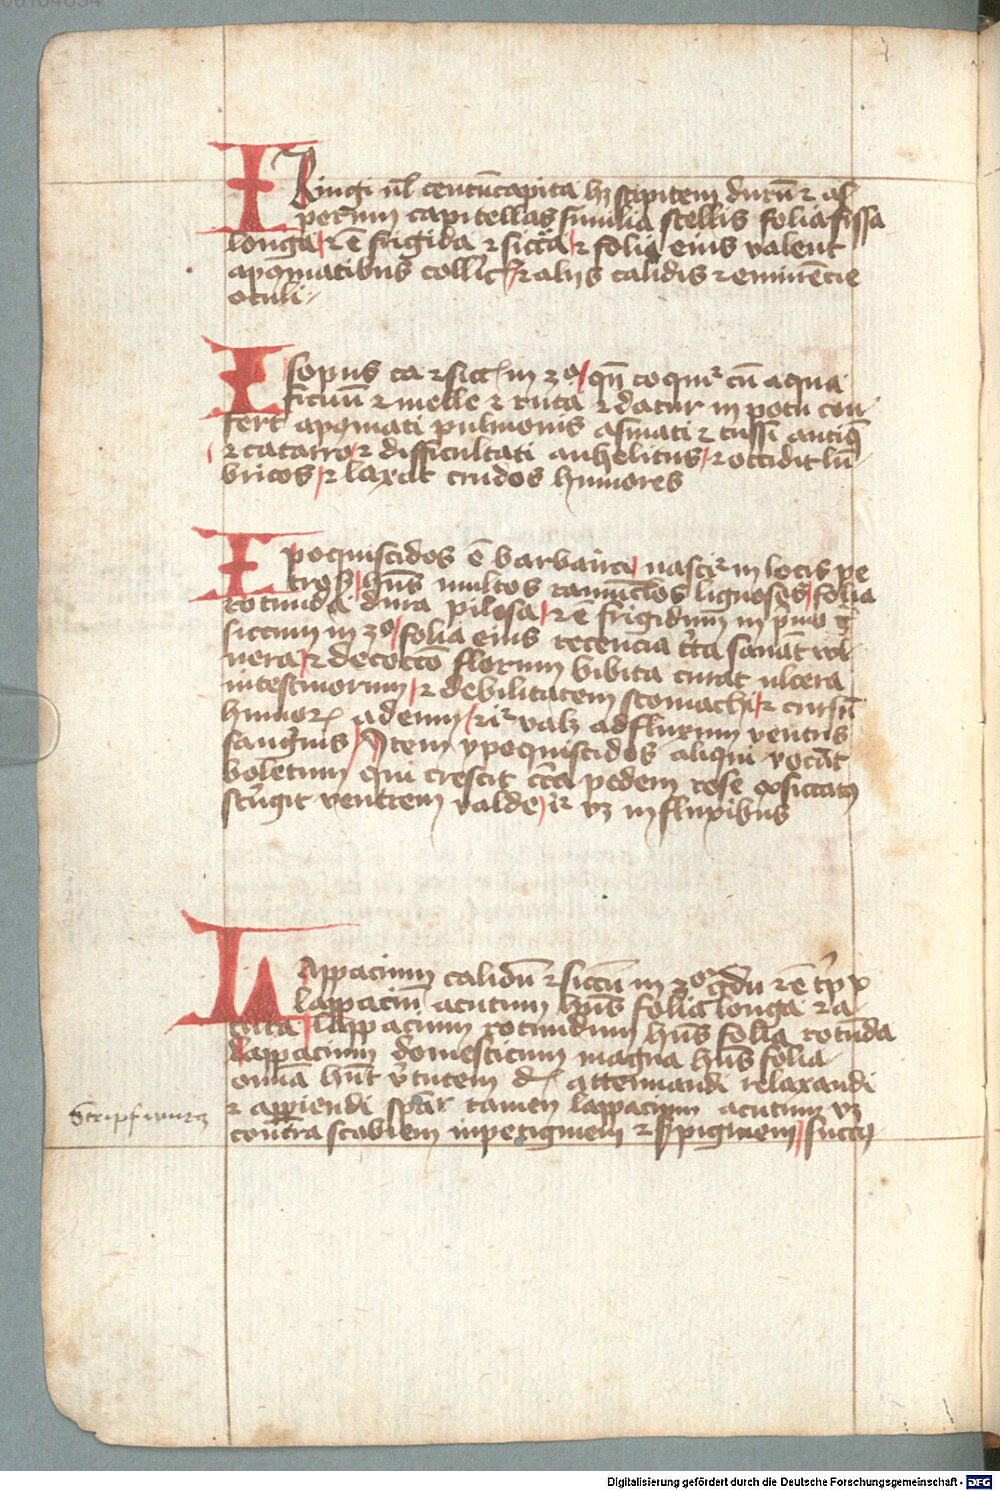 IRingi vel centucapita hz stipitem durum et as
perum capitellas similia stellis folia fissa
longa et e frigida et sicca et folia eius valent
apomatibus colliꝰ et aliis calidis et eminencie
oculi
Isopus ca et sicc in 3o qn coquitur cu aqua
ficuu et melle et ruta et datur in potu con
fert apomati pulmonis asmati et tussi antiq
et catarro et difficultati anhelitus et occidit lu
bricos et laxat crudos humores
Ipoquiscidos e barbaica nascitur in locis pe
trosis hns multos ramuclos lignosos folia
rotunda dura pilosa et e frigidum in primo et
siccum in 3o folia eius recencia trita sanat vul
nera et decoctio florum bibita curat ulcera
intestinorum et debilitatem stomachi et cursu
humor ad eum et ir valz ad fluxum ventris
sanguinis Item ypoquiscidos aliqui vocat
boletum qui crescit circa pedem rose exsiccatus
stringit ventrem valde ir vz in fluxibus
LAppacium calidu et siccu in 3o gdu et e tripx
lappaciu acutum hns folia longa et a
cuta lappacium rotundum hns folia rotunda
lappacium domesticum magna hns folia
omia hnt virtutem d attenuandi relaxandi
et appiendi spar tamen lappacium acutum vz
contra scabiem inpetiginem et spiginem succ
Streipfwurcz
Digitalisierung gefördert durch die Deutsche Forschungsgemeinschaft - DFG